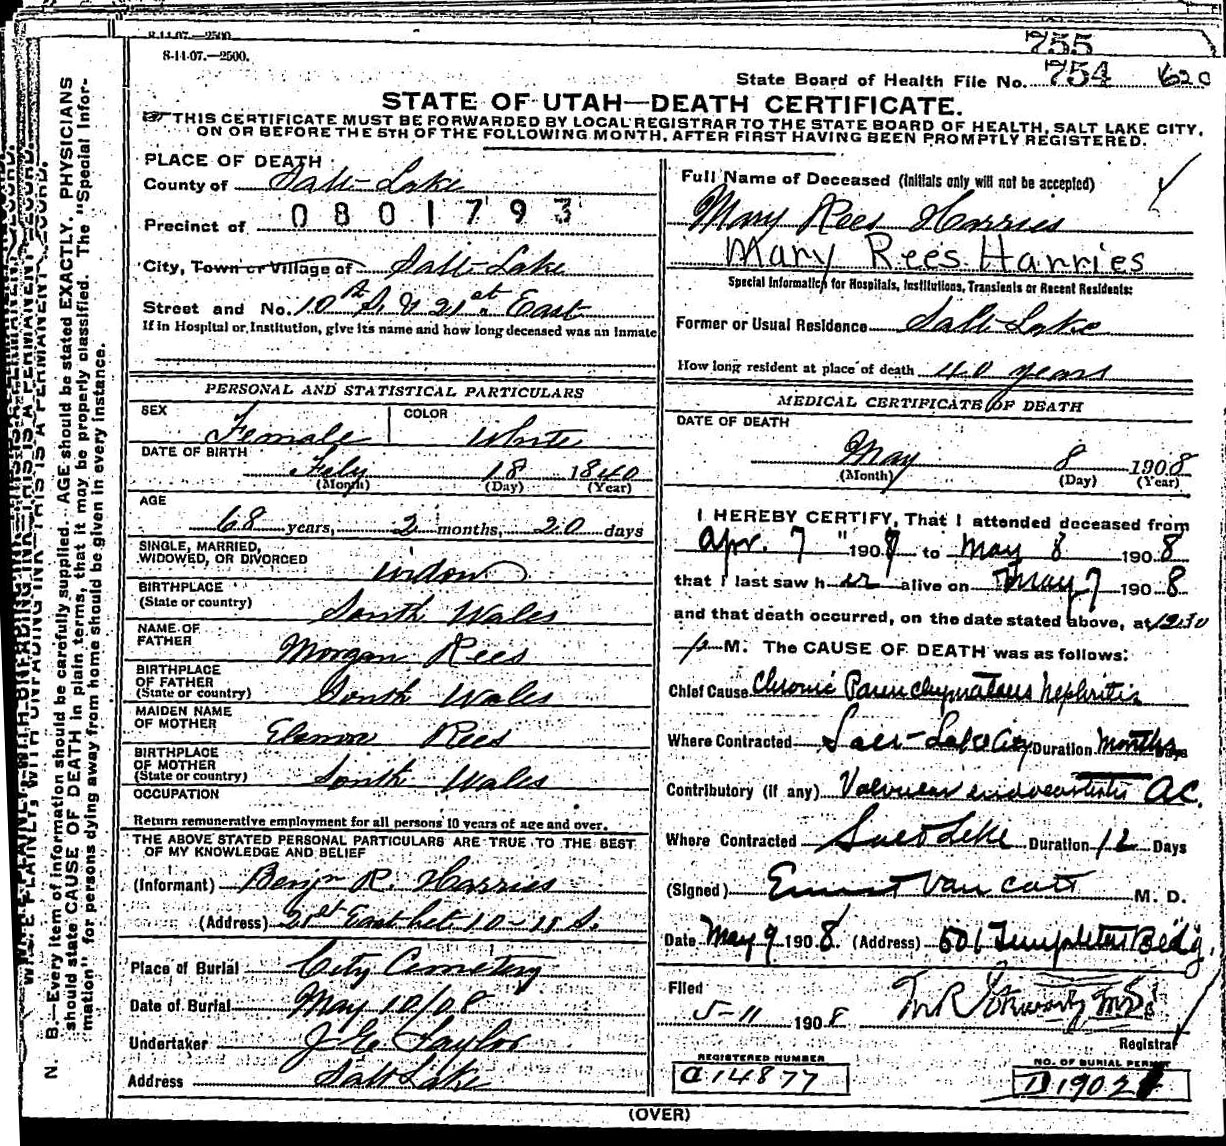 8-11-07.—2500.
8-11-07.—2500.
755
State Board of Health File No. 754 620
STATE OF UTAH—DEATH CERTIFICATE.
THIS CERTIFICATE MUST BE FORWARDED BY LOCAL REGISTRAR TO THE STATE BOARD OF HEALTH, SALT LAKE CITY,
ON OR BEFORE THE 5TH OF THE FOLLOWING MONTH, AFTER FIRST HAVING BEEN PROMPTLY REGISTERED.
PLACE OF DEATH
County of Salt Lake
Precinct of 0801793
City, Town or Village of Salt Lake
Street and No. 10th S. & 21st East
If in Hospital or Institution, give its name and how long deceased was an inmate
PERSONAL AND STATISTICAL PARTICULARS
SEX Female COLOR White
DATE OF BIRTH
Feby 18 1840
(Month) (Day) (Year)
AGE
68 years, 2 months, 20 days
SINGLE, MARRIED,
WIDOWED, OR DIVORCED widow
BIRTHPLACE
(State or country) South Wales
NAME OF
FATHER Morgan Rees
BIRTHPLACE
OF FATHER
(State or country) South Wales
MAIDEN NAME
OF MOTHER Elanor Rees
BIRTHPLACE
OF MOTHER
(State or country) South Wales
OCCUPATION
Return remunerative employment for all persons 10 years of age and over.
THE ABOVE STATED PERSONAL PARTICULARS ARE TRUE TO THE BEST
OF MY KNOWLEDGE AND BELIEF
(Informant) Benjn R. Harries
(Address) 21st East bet 10-11 S.
Place of Burial City Cemetery
Date of Burial May 10/08
Undertaker J. E. Taylor
Address Salt Lake
Full Name of Deceased (Initials only will not be accepted)
Mary Rees Harries
Mary Rees Harries
Special Information for Hospitals, Institutions, Transients or Recent Residents:
Former or Usual Residence Salt Lake
How long resident at place of death 40 years
MEDICAL CERTIFICATE OF DEATH
DATE OF DEATH
May 8 1908
(Month) (Day) (Year)
I HEREBY CERTIFY, That I attended deceased from
Apr. 7 " 190 to May 8 1908
that I last saw her alive on May 7 1908
and that death occurred, on the date stated above, at 12:30
p M. The CAUSE OF DEATH was as follows:
Chief Cause Chronic Parenchymatous Nephritis
Where Contracted Salt Lake City Duration Months Days
Contributory (if any) Valvular endocarditis AC.
Where Contracted Salt Lake Duration 12 Days
(Signed) Ernest Van Cott M. D.
Date May 9 1908 (Address) 501 Templeton Bldg.
Filed
5-11 1908
Registrar
REGISTERED NUMBER
C14877
NO. OF BURIAL PERMIT
D1902
(OVER)
N. B.—Every item of information should be carefully supplied. AGE should be stated EXACTLY. PHYSICIANS
should state CAUSE OF DEATH in plain terms, that it may be properly classified. The "Special Infor-
mation" for persons dying away from home should be given in every instance.